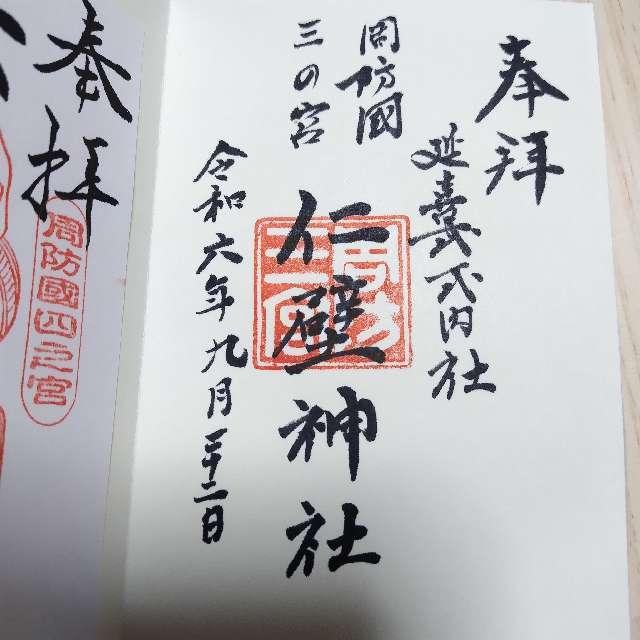 奉拝
延喜式内社
周防國
三の宮
仁壁神社
令和六年九月二十二日
奉拝
周防國四之宮